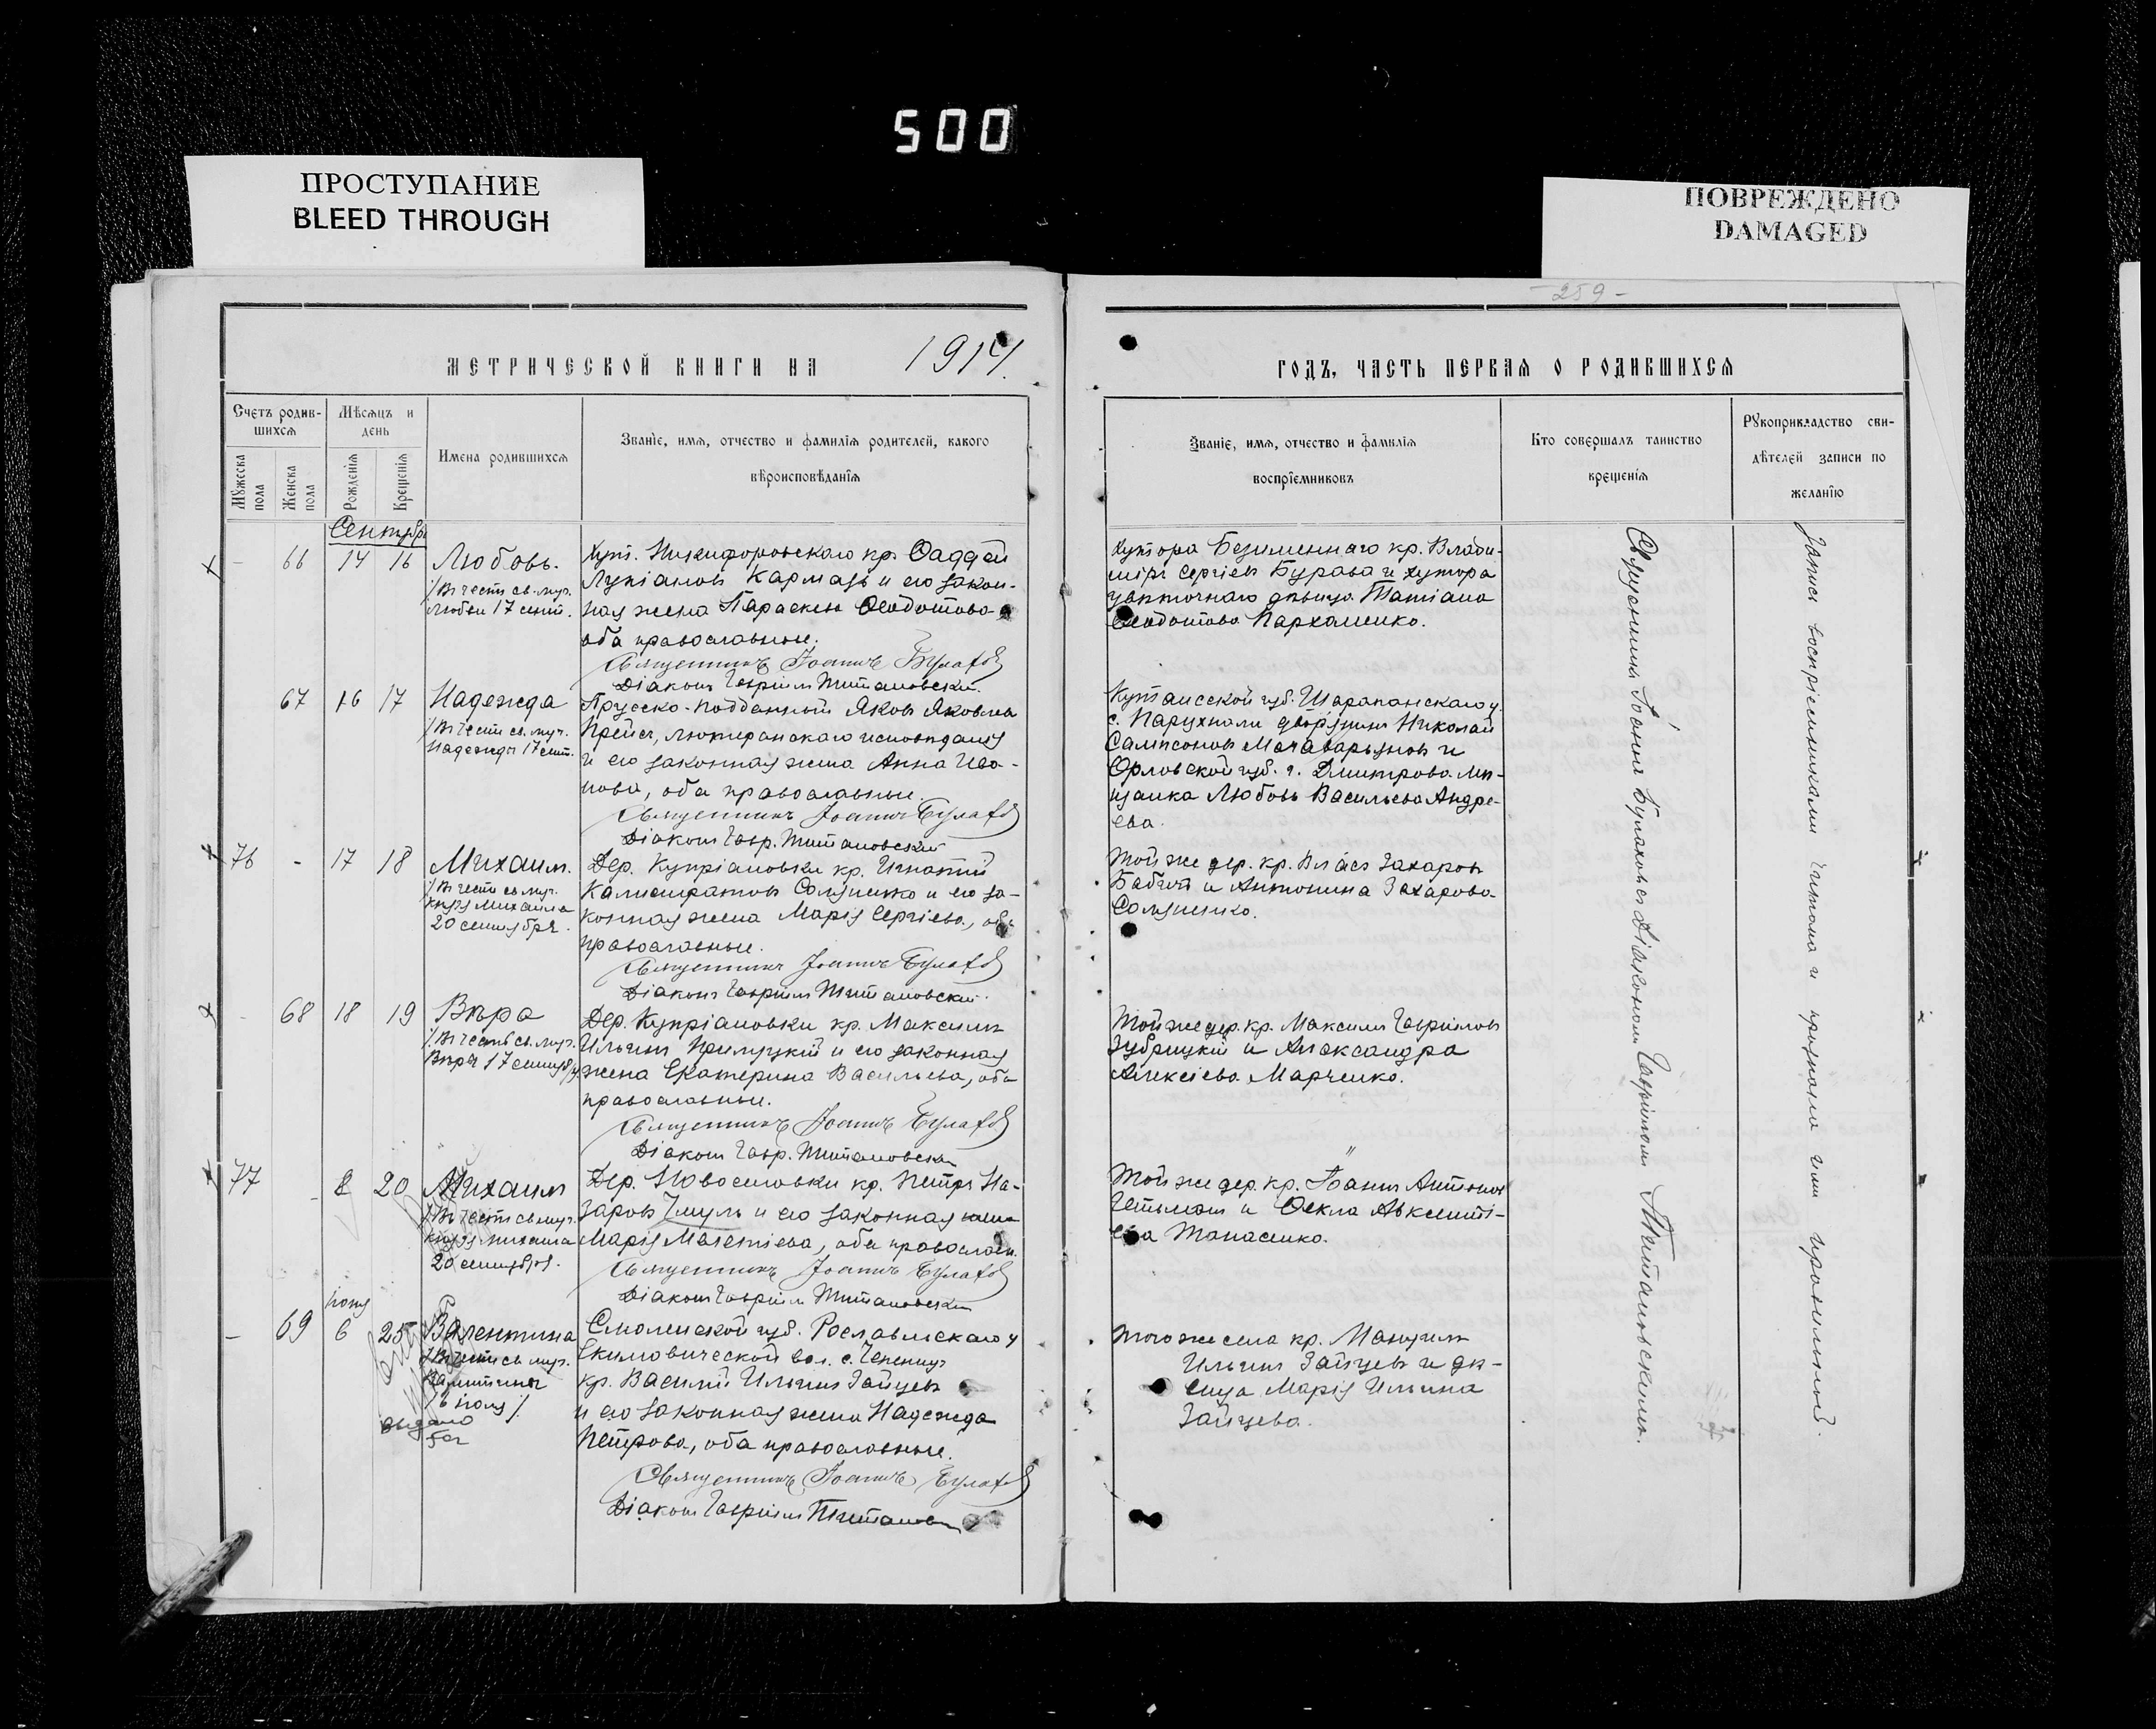 500
ПРОСТУПАНИЕ
BLEED THROUGH
ПОВРЕЖДЕНО
DAMAGED
МЕТРИЧЕСКОЙ КНИГИ НА 1914.
Счетъ родив-
шихся
Мѣсяцъ и
день
Имена родившихся
Званіе, имя, отчество и фамилія родителей, какого
вѣроисповѣданія
Мужеска
пола
Женска
пола
Рожденія
Крещенія
Сентябрь
- 66 14 16 Любовь.
/Въ честь св. муч.
Любви 17 сент.
Хут. Никифоровскаго кр. Фаддей
Лукіановъ Кармазь и его закон-
ная жена Параскева Ѳеодотова
оба православные.
Священникъ Іоаннъ Булаховъ
Діаконъ Гавріилъ Титановскій.
67 16 17 Надежда
/Въ честь св. муч.
Надежды 17 сент.
Прусско-подданный Яковъ Яковлевъ
Прейсъ, лютеранскаго исповѣданія
и его законная жена Анна Ива-
нова, оба православные.
Священникъ Іоаннъ Булаховъ
Діаконъ Гавр. Титановскій
76 - 17 18 Михаилъ.
/Въ честь св. муч.
князя Михаила
20 сентября.
Дер. Купріановки кр. Игнатій
Калистратовъ Солуненко и его за-
конная жена Марія Сергіева, оба
православные.
Священникъ Іоаннъ Булаховъ
Діаконъ Гавріилъ Титановскій.
- 68 18 19 Вѣра
/Въ честь св. муч.
Вѣры 17 сентября
Дер. Купріановки кр. Максимъ
Ильинъ и его законная
жена Екатерина Васильева, оба
православные.
Священникъ Іоаннъ Булаховъ
Діаконъ Гавр. Титановскій
77 - 8 20 Михаилъ
/Въ честь св. муч.
князя Михаила
20 сентября.
Дер. Новоселовки кр. Петръ На-
заровъ Чмуль и его законная жена
Марія Матвѣева, оба православн.
Священникъ Іоаннъ Булаховъ
Діаконъ Гавріилъ Титановскій
іюля
- 69 6 25 Валентина
/Въ честь св. муч.
Валентины
/6 іюля/.
выдано
Смоленской губ. Рославльскаго у
Екимовической вол. с.
кр. Василій Ильинъ Зайцевъ
и его законная жена Надежда
Петрова, оба православные.
Священникъ Іоаннъ Булаховъ
Діаконъ Гавріилъ Титановскій
- 259 -
ГОДЪ, ЧАСТЬ ПЕРВАЯ О РОДИВШИХСЯ
Званіе, имя, отчество и фамилія
воспріемниковъ
Кто совершалъ таинство
крещенія
Рукоприкладство сви-
дѣтелей записи по
желанію
Хутора Безименнаго кр. Влади-
міръ Сергіевъ Бурава и хутора
Цвѣточнаго дѣвица Татіана
Ѳеодотова Пархоменко.
Кутаисской губ. Шарапанскаго у.
с. Парухнали дворянинъ Николай
Сампсоновъ Мачаваріановъ и
Орловской губ. г. Дмитрова мѣ-
щанка Любовь Васильева Андре-
ева.
Той же дер. кр. Власъ Захаровъ
Бабичъ и Антонина Захарова
Солуненко.
Той же дер. кр. Максимъ Гавріиловъ
Зубрицкій и Александра
Алексіева Марченко.
Той же дер. кр. Іоаннъ Антоновъ
Гетьманъ и Ѳекла Авксенті-
ева Танасенко.
Того же села кр. Мануилъ
Ильинъ Зайцевъ и дѣ-
вица Марія Ильина
Зайцева.
Священникъ Іоаннъ Булаховъ съ Діакономъ Гавріиломъ Титановскимъ.
Запись воспріемниками читана и признана ими правильной.